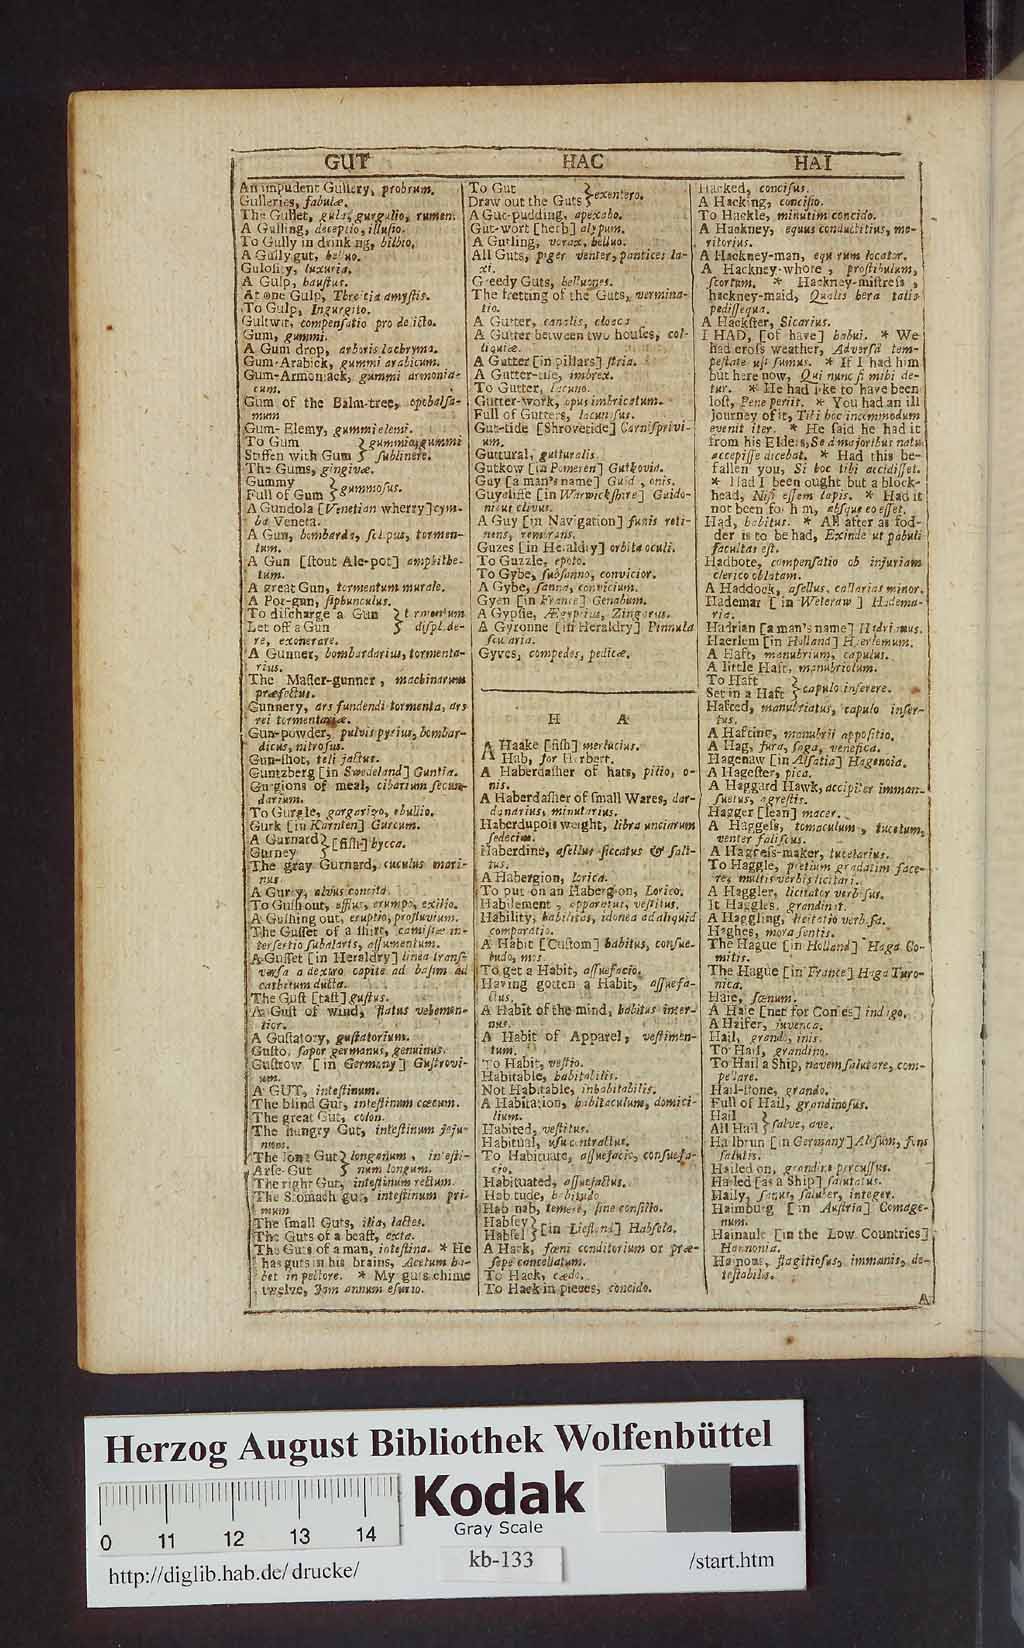 GUT
HAC
HAI
An impudent Gullery, probrum.
Gulleries, fabulæ.
The Gullet, gula, gurgulio, rumen.
A Gulling, deceptio, illusio.
To Gully in drinking, bilbio,
A Gully gut, helluo.
Gulosity, luxuria.
A Gulp, haustus.
At one Gulp, Threicia amystis.
To Gulp, Ingurgito.
Gultwit, compensatio pro delicto.
Gum, gummi.
A Gum drop, arboris lachryma.
Gum-Arabick, gummi arabicum.
Gum-Armoniack, gummi armonia-
cum.
Gum of the Balm-tree, opobalsa-
mum
Gum-Elemy, gummi elemi.
To Gum } gummio, gummi
Stiffen with Gum } sublinere.
The Gums, gingivæ.
Gummy
Full of Gum } gummosus.
A Gundola [Venetian wherry] cym-
ba Veneta.
A Gun, bombarda, sclopus, tormen-
tum.
A Gun [stout Ale-pot] amphithe-
tum.
A great Gun, tormentum murale.
A Pot-gun, siphunculus.
To discharge a Gun } tormentum
Let off a Gun } displode-
re, exonerare.
A Gunner, bombardarius, tormenta-
rius.
The Master-gunner, machinarum
præfectus.
Gunnery, ars fundendi tormenta, ars
rei tormentariæ.
Gun-powder, pulvis pyrius, bombar-
dicus, nitrosus.
Gun-shot, teli jactus.
Guntzberg [in Swedeland] Guntia.
Gurgions of meal, cibarium secun-
darium.
To Gurgle, gargarizo, ebullio.
Gurk [in Karnten] Gurcum.
A Gurnard
Gurney } [fish] hycca.
The gray Gurnard, cuculus mari-
nus.
A Gurry, alvus concita.
To Gush out, effluo, erumpo, exilio.
A Gushing out, eruptio, profluvium.
The Gusset of a shirt, camisiæ in-
tersertio subalaris, assumentum.
A Gusset [in Heraldry] linea trans-
versa a dextro capite ad basim ad
cathetum ducta.
The Gust [tast] gustus.
A Gust of wind, flatus vehemen-
tior.
A Gustatory, gustatorium.
Gusto, sapor germanus, genuinus.
Gustrow [in Germany] Gustrovi-
um.
A GUT, intestinum.
The blind Gut, intestinum cæcum.
The great Gut, colon.
The hungry Gut, intestinum jeju-
num.
The long Gut } longanum, intesti-
Arse-Gut } num longum.
The right Gut, intestinum rectum.
The Stomach gut, intestinum pri-
mum
The small Guts, ilia, lactes.
The Guts of a beast, exta.
The Guts of a man, intestina. * He
has guts in his brains, Acetum ha-
bet in pectore. * My guts chime
twelve, Jam annum esurio.
To Gut
Draw out the Guts } exentero.
A Gut-pudding, apexabo.
Gut-wort [herb] alypum.
A Gutling, vorax, helluo.
All Guts, piger venter, pantices la-
xi.
Greedy Guts, helluones.
The fretting of the Guts, vermina-
tio.
A Gutter, canalis, cloaca
A Gutter between two houses, col-
liquiæ.
A Gutter [in pillars] stria.
A Gutter-tile, imbrex.
To Gutter, lacuno.
Gutter-work, opus imbricatum.
Full of Gutters, lacunosus.
Gut-tide [Shrovetide] Carnisprivi-
um.
Guttural, gutturalis.
Gutkow [in Pomeren] Gutkovia.
Guy [a man's name] Guid, onis.
Guycliffe [in Warwickshire] Guido-
nicus clivus.
A Guy [in Navigation] funis reti-
nens, remorans.
Guzes [in Heraldry] orbita oculi.
To Guzzle, epoto.
To Gybe, subsanno, convicior.
A Gybe, sanna, convicium.
Gyen [in France] Genabum.
A Gypsie, Ægyptius, Zingarus.
A Gyronne [in Heraldry] Pinnula
scutaria.
Gyves, compedes, pedicæ.
H A
A Haake [fish] merlucius.
Hab, for Herbert.
A Haberdasher of hats, pilio, o-
nis.
A Haberdasher of small Wares, dar-
danarius, minutarius.
Haberdupois weight, libra unciarum
sedecim.
Haberdine, asellus siccatus & sali-
tus.
A Habergion, lorica.
To put on an Habergion, Lorico.
Habilement, apparatus, vestitus.
Hability, habilitas, idonea ad aliquid
comparatio.
A Habit [Custom] habitus, consue-
tudo, mos.
To get a Habit, assuefacio.
Having gotten a Habit, assuefa-
ctus.
A Habit of the mind, habitus inter-
nus.
A Habit of Apparel, vestimen-
tum.
To Habit, vestio.
Habitable, habitabilis.
Not Habitable, inhabitabilis.
A Habitation, habitaculum, domici-
lium.
Habited, vestitus.
Habitual, usu contractus.
To Habituate, assuefacio, consuefa-
cio.
Habituated, assuefactus.
Habitude, habitudo
Hab nab, temere, sine consilio.
Habsey
Habsel } [in Liefland] Habsela.
A Hack, fœni conditorium or præ-
sepe cancellatum.
To Hack, cædo.
To Hack in pieces, concido.
Hacked, concisus.
A Hacking, concisio.
To Hackle, minutim concido.
A Hackney, equus conductitius, me-
ritorius.
A Hackney-man, equorum locator.
A Hackney-whore, prostibulum,
scortum. * Hackney-mistress,
hackney-maid, Qualis hera talis
pedissequa.
A Hackster, Sicarius.
I HAD, [of have] habui. * We
had cross weather, Adversâ tem-
pestate usi sumus. * If I had him
but here now, Qui nunc si mihi de-
tur. * He had like to have been
lost, Pene periit. * You had an ill
journey of it, Tibi hoc incommodum
evenit iter. * He said he had it
from his Elders, Se a majoribus natu
accepisse dicebat. * Had this be-
fallen you, Si hoc tibi accidisset.
* Had I been ought but a block-
head, Nisi essem lapis. * Had it
not been for him, absque eo esset.
Had, habitus. * All after as fod-
der is to be had, Exinde ut pabuli
facultas est.
Hadbote, compensatio ob injuriam
clerico oblatam.
A Haddock, asellus, callarias minor.
Hademar [in Weteraw] Hadema-
ria.
Hadrian [a man's name] Hadrianus.
Haerlem [in Holland] Haerlemum.
A Haft, manubrium, capulus.
A little Haft, manubriolum.
To Haft
Set in a Haft } capulo inserere.
Hafted, manubriatus, capulo inser-
tus.
A Hafting, manubrii appositio.
A Hag, furia, saga, venefica.
Hagenaw [in Alsatia] Hagenoia.
A Hagester, pica.
A Haggard Hawk, accipiter imman-
suetus, agrestis.
Hagger [lean] macer.
A Haggess, tomaculum, tucetum,
venter faliscus.
A Haggess-maker, tucetarius.
To Haggle, pretium gradatim face-
re, multis verbis licitari.
A Haggler, licitator verbosus.
It Haggles, grandinat.
A Haggling, licitatio verbosa.
Haghes, mora sentis.
The Hague [in Holland] Haga Co-
mitis.
The Hague [in France] Haga Turo-
nica.
Haie, fœnum.
A Haie [net for Conies] indago.
A Haifer, juvenca.
Hail, grando, inis.
To Hail, grandino.
To Hail a Ship, navem salutare, com-
pellare.
Hail-stone, grando.
Full of Hail, grandinosus.
Hail
All Hail } salve, ave.
Hailbrun [in Germany] Alisum, fons
salutis.
Hailed on, grandine percussus.
Hailed [as a Ship] salutatus.
Haily, sanus, saluber, integer.
Haimburg [in Austria] Comage-
num.
Hainault [in the Low Countries]
Hannonia.
Hainous, flagitiosus, immanis, de-
testabilis.
A
Herzog August Bibliothek Wolfenbüttel
Kodak
Gray Scale
0 11 12 13 14
kb-133
http://diglib.hab.de/drucke/
/start.htm